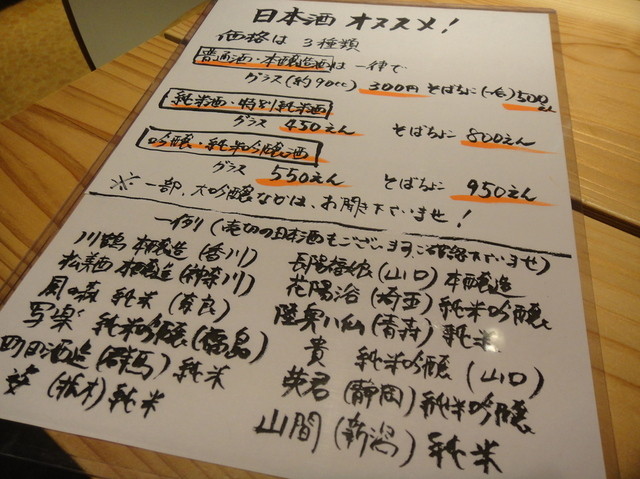 日本酒 オススメ!
価格は 3種類
普通酒・本醸造酒は一律で
グラス(約90cc) 300円 そばちょこ(一合)500えん
純米酒・特別純米酒
グラス 450えん そばちょこ 800えん
吟醸・純米吟醸酒
グラス 550えん そばちょこ 950えん
※一部、大吟醸などは、お聞き下さいませ!
一例り(売切の日本酒もございます、ご確認下さいませ)
川鶴 本醸造(香川)
松美酉 本醸造(神奈川)
風の森 純米(奈良)
写楽 純米吟醸(福島)
町田酒造(群馬)純米
姿(栃木)純米
長陽福娘(山口)本醸造
花陽浴(埼玉)純米吟醸
陸奥八仙(青森)純米
貴 純米吟醸(山口)
英君(静岡)純米吟醸
山間(新潟)純米